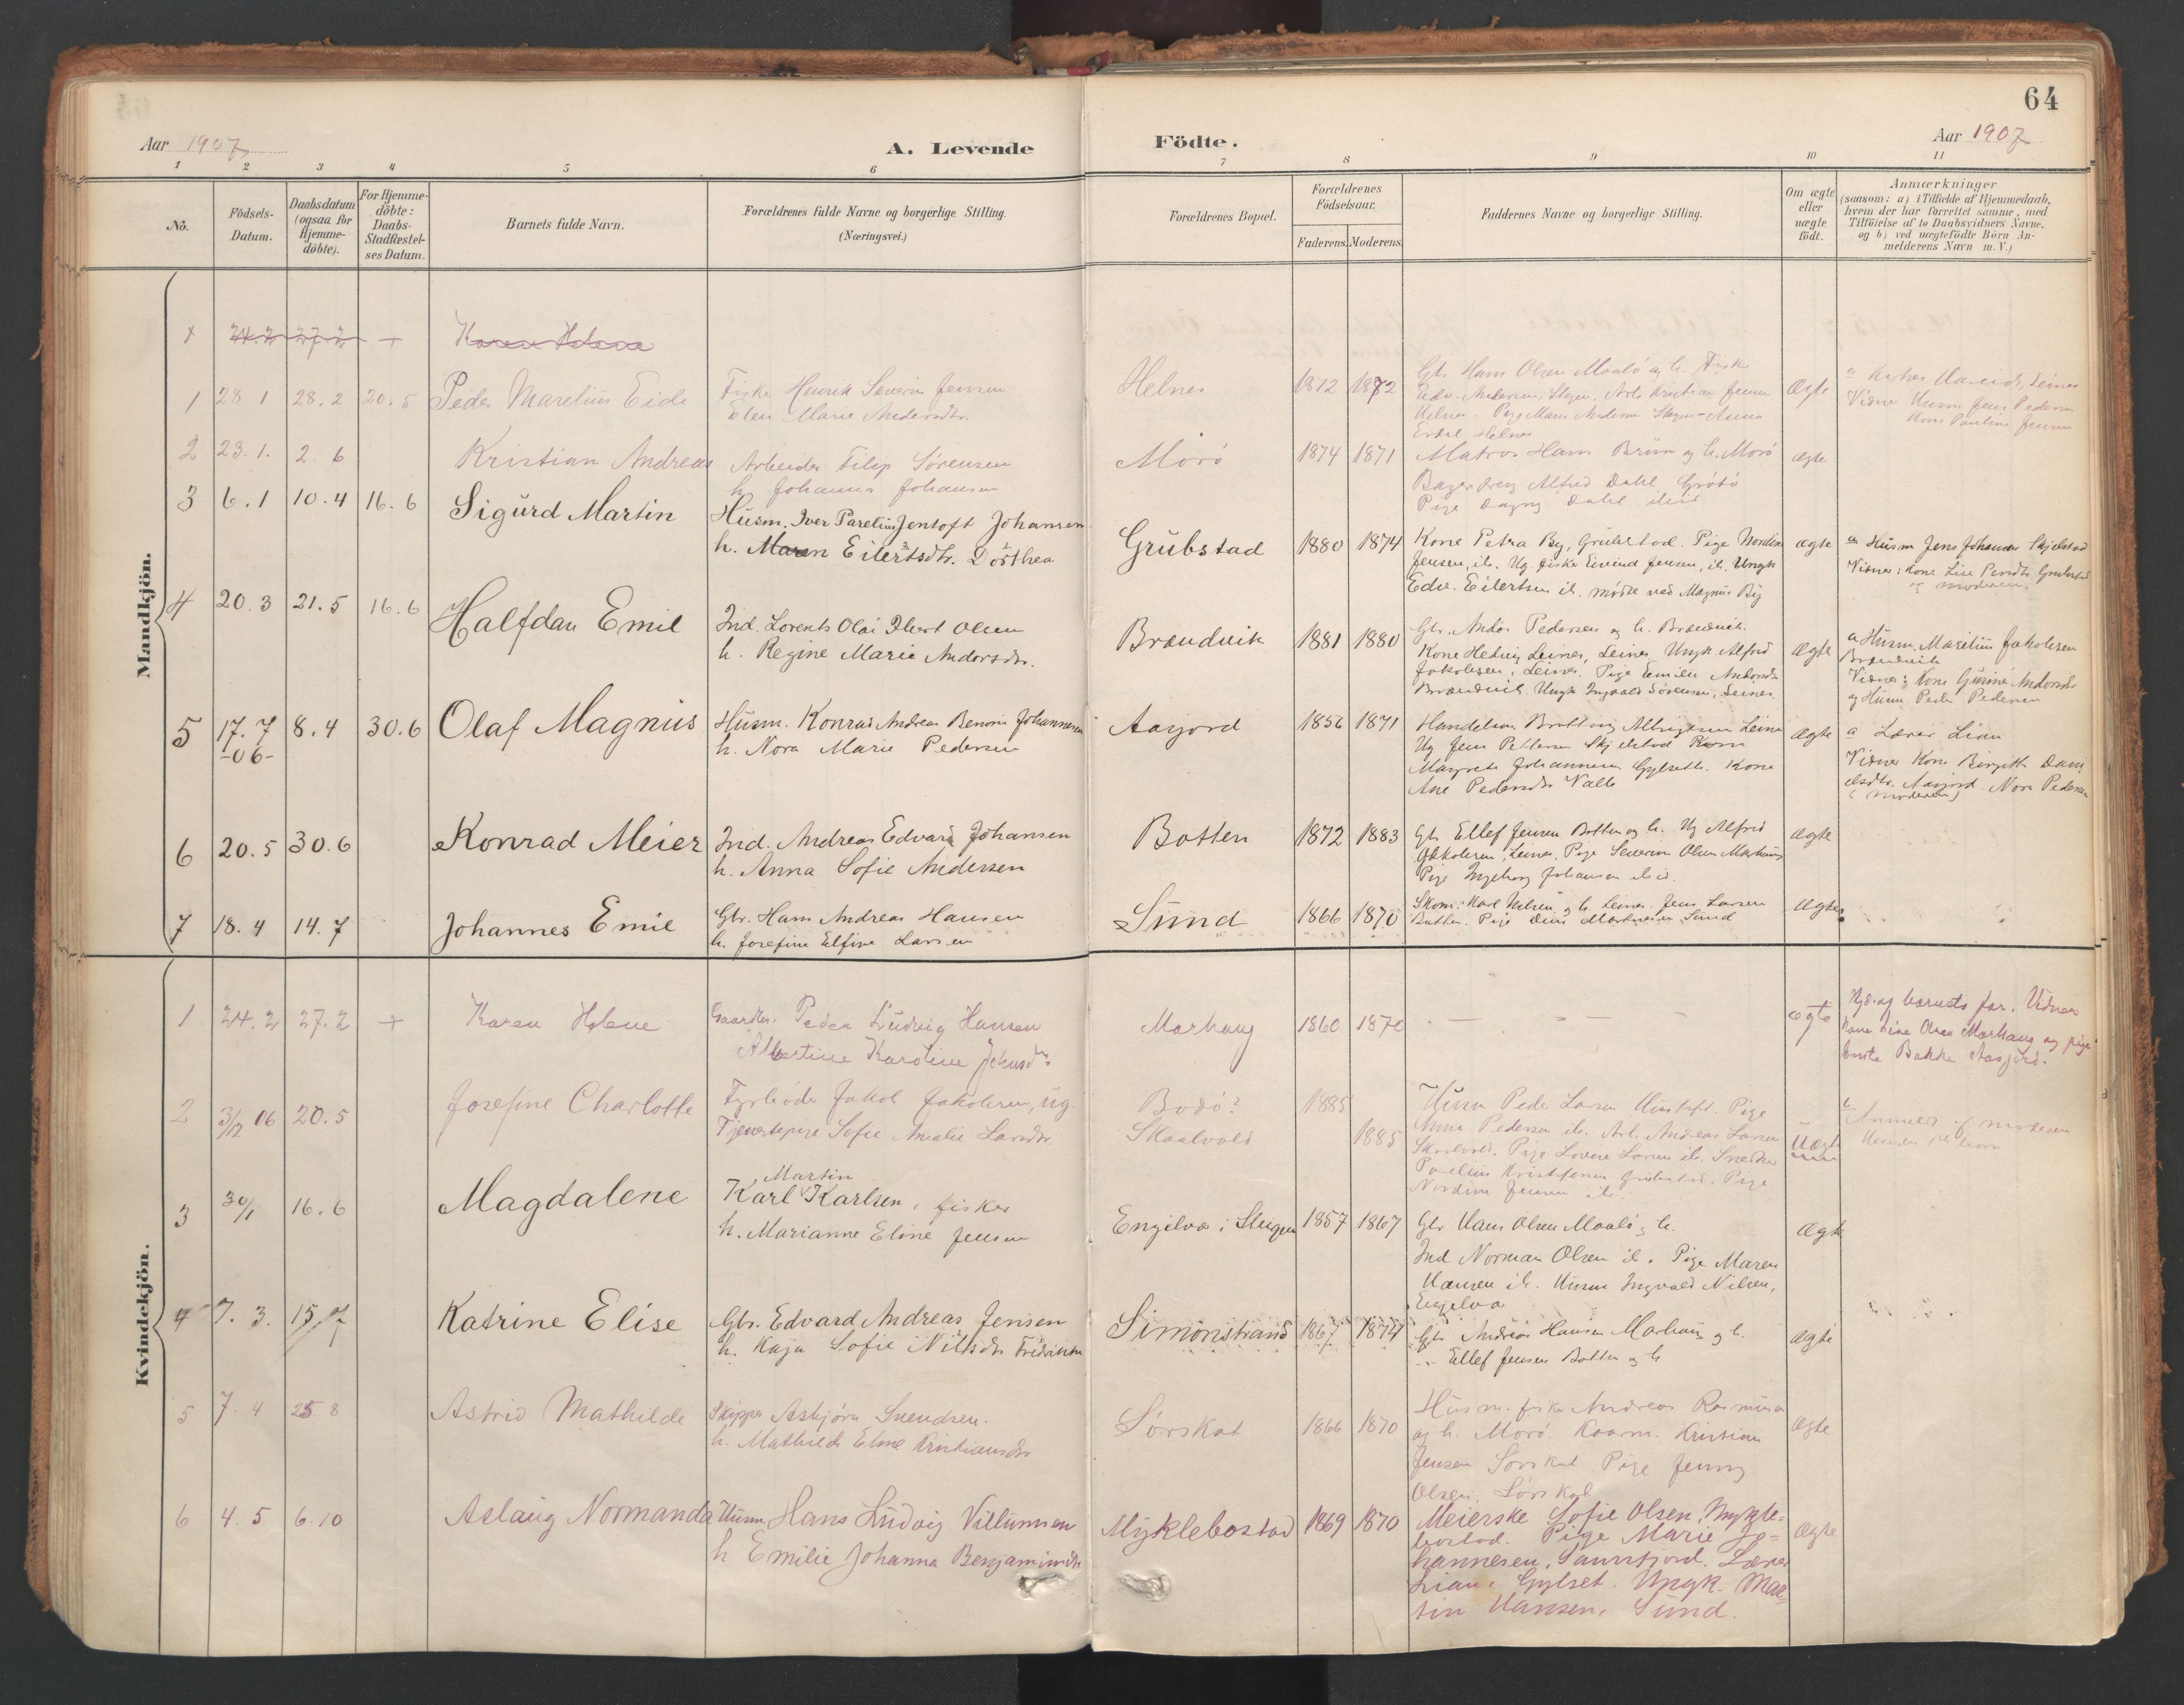 64
Aar 1907
A. Levende
Födte.
Aar 1907
1 2 3 4 5 6 7 8 9 10 11
No.
Födsels-
Datum.
Daabsdatum
(ogsaa for
Hjemme-
döbte).
For Hjemme-
döbte:
Daabs-
Stadfæstel-
ses Datum.
Barnets fulde Navn.
Forældrenes fulde Navne og borgerlige Stilling.
(Næringsvei.)
Forældrenes Bopæl.
Forældrenes
Födselsaar.
Faderens. Moderens.
Faddernes Navne og borgerlige Stilling.
Om ægte
eller
uægte
født.
Anmærkninger
(saasom: a) i Tilfælde af Hjemmedaab,
hvem der har forrettet samme, med
Tilföielse af to Daabsvidners Navne,
og b) ved uægtefödte Börn An-
melderens Navn m. V.)
Mandkjön.
24.2 27.2 + Karen Helene
1 28.1 28.2 20.5 Peder Marelius Eide
Fisker Henrik Severin Jensen
Elen Marie Andersdtr.
Helnes 1872 1872
Gbr Hans Olsen Maalö og h. Fisker
Edv. Andersen Stegen. Arb. Kristian Jensen
Helnes. Pige Maren Andersen Stegen - Anna
Helnes
Ægte
Vidner Husm Jens Pedersen
Kone Pauline Jensen
2 23.1. 2.6 Kristian Andreas
Arbeider Filip Sørensen
h. Johanna Johansen
Mörö 1874 1871
Matros Hans Bruun og h. Morö
Alfred Dahl Grötö
Pige Dagny Dahl ibid
ægte
3 6.1 10.4 16.6 Sigurd Martin
Husm. Iver Parelius Jentoft Johansen
h. Maren Eilertsdtr. Dorthea
Grubstad 1880 1874
Kone Petra By, Grubstad. Pige Nordine
Jensen, ib. Ug. fisker Eivind Jensen, ib. Ungk
Edv. Eilertsen ib. mødte ved Magnus By
ægte
a Husm Jens Johansen Skjelstad
Vidner: Kone Lise Grubstad
og moderen.
4 20.3 21.5 16.6 Halfdan Emil
Ind. Lorents Olai Ebert Olsen
h. Regine Marie Andorsdtr.
Brændvik 1881 1880
Gbr. Andor Pedersen og h. Brændvik
Kone Hedvig Leines, Leines Ungk Alfred
Jakobsen, Leines. Pige Emilie Andorsdtr
Brændvik Ungk Ingvald Sörensen, Leines
Ægte
a Husm. Marelius Jakobsen
Brændvik
Vidner: Kone Gurine Andorsdtr
og Husm Peder Pedersen
5 17.7 8.4 30.6 Olaf Magnus
-06-
Husm. Konrad Andreas Benoni Johannesen
h. Nora Marie Pedersen
Aasjord 1856 1871
Handelsm. Albrigtsen Leines
Ug Jens Pettersen Skjelstad Kone
Margrete Johannesen Gylseth. Kone
Ane Pedersdtr Valle
Ægte
a Lærer Lian
Vidner Kone Birgitte Dani-
elsdtr. Aasjord. Nora Pedersen
(moderen)
6 20.5 30.6 Konrad Meier
Ind. Andreas Edvard Johansen
h. Anna Sofie Andersen
Botten 1872 1883
Gbr Ellef Jensen Botten og h. Ug Alfred
Jakobsen, Leines. Pige Severine Olsen Marhaug
Pige Ingeborg Johansen ibid.
Ægte
7 18.4 14.7 Johannes Emil
Gbr. Hans Andreas Hansen
h. Josefine Elfine Larsen
Sund 1866 1870
Skom. Karl Nilsen og h. Leines. Jens Larsen
Botten. Pige Martinesen Sund
Ægte
Kvindekjön.
1 24.2 27.2 + Karen Helene
Gaardbr. Peder Ludvig Hansen
Albertine Karoline Johnsdtr
Marhaug 1860 1870
- - - -
ægte
Hjd. af barnets far. Vidner
Kone Line Olsen Marhaug og pige
Bakke Aasjord.
2 3/12 06 20.5 Josefine Charlotte
Fyrböder Jakob Jakobsen, ug.
Tjenestepige Sofie Amalie Larsdtr.
Bodö? 1885
Skaalvold 1885
Husm Peder Larsen Pige
Anna Pedersen ib. Arb. Andreas Larsen
Skaalvold. Pige Lovise Larsen ib. Snedker
Parelius Kristensen Grubstad. Pige
Nordine Jensen ib.
Uægte
b Anmeldt af moderen
Hendes 1ste barn
3 30/1 16.6 Magdalene
Martin
Karl Karlsen, fisker
h. Marianne Eline Jensen
Engelvær i Stegen 1857 1867
Gbr Hans Olsen Maalö og h.
Ind Norman Olsen ib. Pige Maren
Hansen ib. Husm Ingvald Nilsen,
Engelvær
Ægte
4 7.3. 15/7 Katrine Elise
Gbr. Edvard Andreas Jensen
h. Kaja Sofie Nilsdtr Fredriksen
Simonstrand 1867 1874
Gbr Andreas Hansen Marhaug og h.
-"- Ellef Jensen Botten og h
Ægte
5 7.4 25.8 Astrid Mathilde
Skipper Asbjørn Svendsen.
h. Mathilde Eline Kristiansdtr
Sørskot 1866 1870
Husm. fisker Andreas Rasmussen
og h. Morö. Kaarm. Kristian
Jensen Sørskot Pige Jenny
Olsen Sørskot
Ægte
6 4.5 6.10 Aslaug Normanda
Husm. Hans Ludvig Villumsen
h Emilie Johanna Benjaminsdtr
Myklebostad 1869 1870
Meierske Sofie Olsen, Mykle-
bostad. Pige Marie Jo-
hannesen, Saursfjord. Lærer
Lian, Gylset. Ungk. Mar-
tin Hansen, Sund.
Ægte